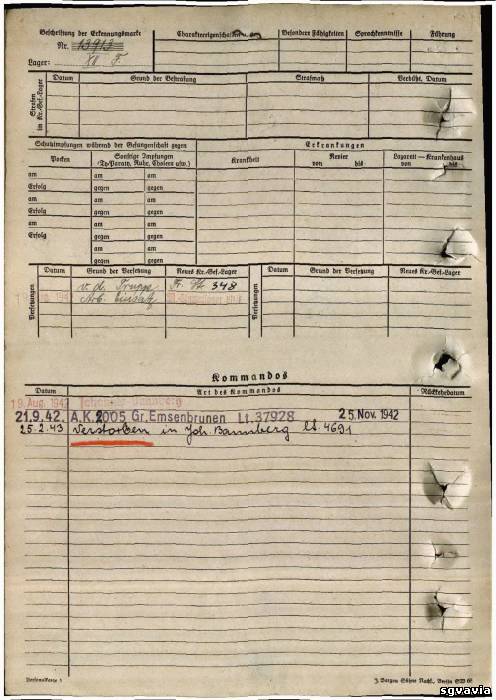 Beschriftung der Erkennungsmarke
Nr. 13913
Lager: XII F.
Charaktereigenschaften
Besondere Fähigkeiten
Sprachkenntnisse
Führung
Strafen im Kr.-Gef.-Lager
Datum Grund der Bestrafung Strafmaß Verbüßt, Datum
Schutzimpfungen während der Gefangenschaft gegen
Erkrankungen
Pocken
Sonstige Impfungen
(Ty.Paraty. Ruhr, Cholera usw.)
Krankheit
Revier
von bis
Lazarett — Krankenhaus
von bis
am am am
Erfolg gegen gegen
am am am
Erfolg gegen gegen
am am am
Erfolg gegen gegen
am am
gegen gegen
Versetzungen
Datum Grund der Versetzung Neues Kr.-Gef.-Lager
v. d. Truppe Fr. St. 348
1942 Arb. Einsatz
Versetzungen
Datum Grund der Versetzung Neues Kr.-Gef.-Lager
Kommandos
Datum Art des Kommandos Rückkehrdatum
19. Aug. 1942
21.9.42. A.K.2005 Gr.Emsenbrunen Lt.37928 25. Nov. 1942
25.2.43 Verstorben in Joh. Bannberg Lt. 4691
Personalkarte I
J. Bargou Söhne Nachf., Berlin SW 68
sgvavia